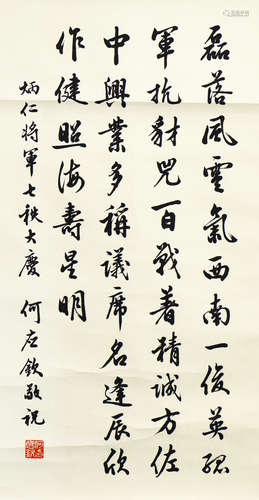 磊落風雲氣西南一俊英孤
軍抗豺兕百戰著精誠方佐
中興業多稱議席名逢辰欣
作健照海壽星明
炳仁將軍七秩大慶 何应欽敬祝